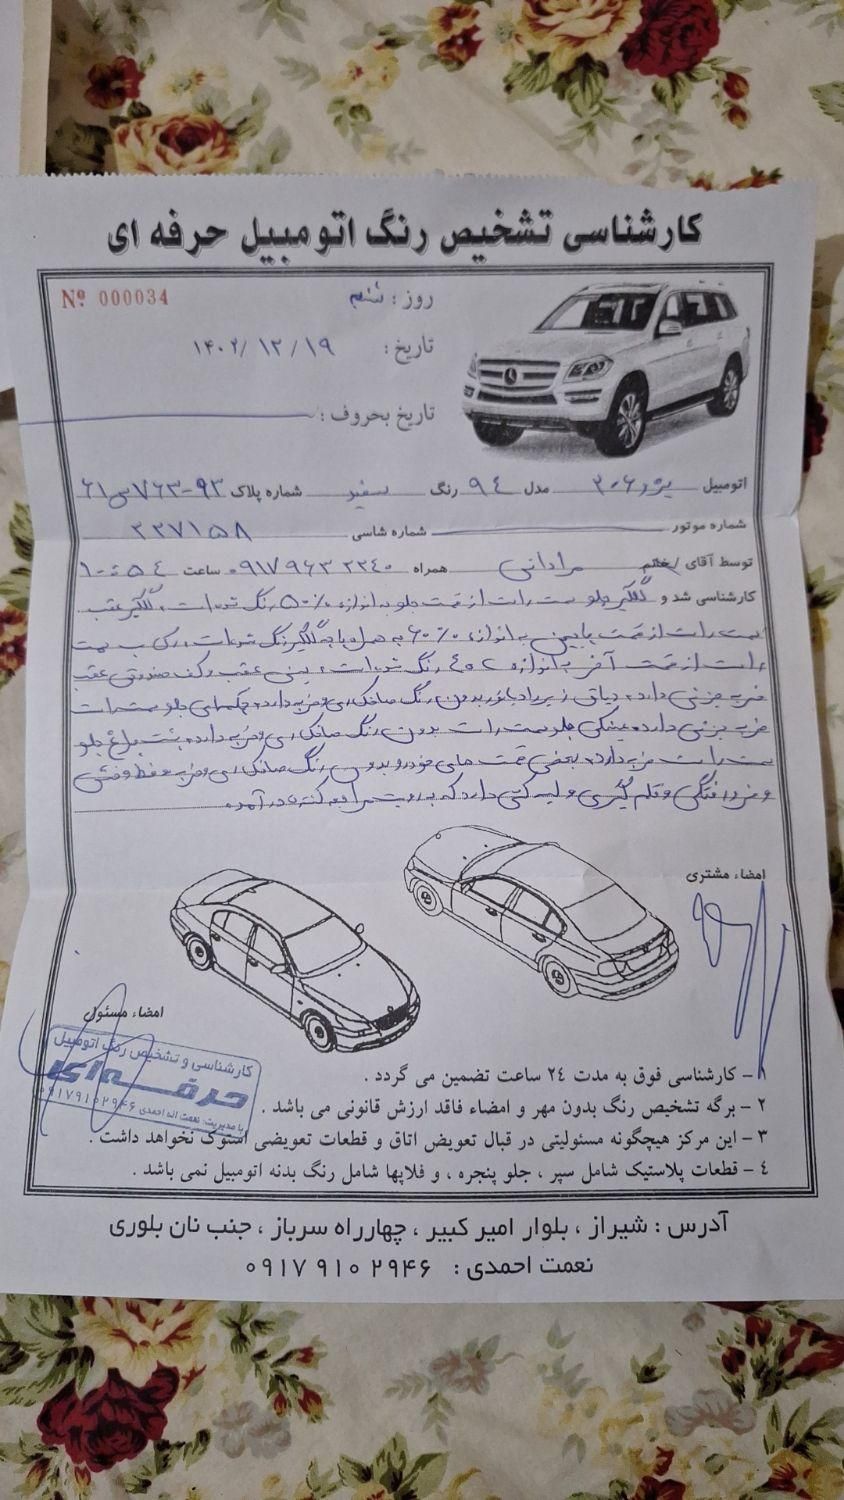 کارشناسی تشخیص رنگ اتومبیل حرفه ای
Nº 000034
روز : شنبه
تاریخ : ۱۴۰۲/۱۲/۱۹
تاریخ بحروف :
اتومبیل پژو ۲۰۶ مدل ۹۴ رنگ سفید شماره پلاک ۹۳-۷۶۳س۶۱
شماره موتور شماره شاسی ۲۲۷۱۵۸
توسط آقای / خانم مرادانی همراه ۰۹۱۷۹۶۳۲۲۴۰ ساعت ۱۰:۵۴
کارشناسی شد و گلگیر جلو سمت راست از قسمت جلو به اندازه ۵۰٪ رنگ شده است، گلگیر عقب
سمت راست از قسمت پایین به اندازه ۶۰٪ به همراه پا گلگیر رنگ شده است، رکاب سمت
راست از قسمت آخر به اندازه رنگ شده است، سینی عقب و کف صندوق عقب
ضربه جزئی دارد، زیر رادیاتور بدون رنگ صافکاری و ضربه دارد، جلو سمت راست
ضربه جزئی دارد، سینی جلو سمت راست بدون رنگ صافکاری و ضربه دارد، پشت چراغ جلو
سمت راست ضربه دارد، بعضی قسمت های خودرو بدون رنگ صافکاری و ضربه و خط و خش
و فرورفتگی و قلم گیری و لیسه گیری دارد که به رویت مراجعه کننده در آمد.
امضاء مشتری
امضاء مسئول
کارشناسی و تشخیص رنگ اتومبیل
حرفه ای
با مدیریت: نعمت اله احمدی ۰۹۱۷۹۱۰۲۹۴۶
۱ - کارشناسی فوق به مدت ۲٤ ساعت تضمین می گردد .
۲ - برگه تشخیص رنگ بدون مهر و امضاء فاقد ارزش قانونی می باشد .
۳ - این مرکز هیچگونه مسئولیتی در قبال تعویض اتاق و قطعات تعویضی استوک نخواهد داشت .
٤ - قطعات پلاستیک شامل سپر ، جلو پنجره ، و فلاپها شامل رنگ بدنه اتومبیل نمی باشد .
آدرس : شیراز ، بلوار امیر کبیر ، چهارراه سرباز ، جنب نان بلوری
نعمت احمدی : ۰۹۱۷ ۹۱۰ ۲۹۴۶